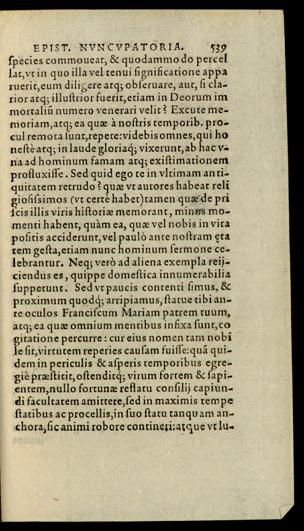 EPIST. NVNCVPATORIA. 539
species commoueat, & quodammodo percel
lat, vt in quo illa vel tenui significatione appa
ruerit, eum diligere atq; obseruare, aut, si cla-
rior atq; illustrior fuerit, etiam in Deorum im
mortaliū numero venerari velit? Excute me-
moriam, atq; ea quæ à nostris temporib. pro-
cul remota sunt, repete: videbis omnes, qui ho
nestè atq; in laude gloriaq́; vixerunt, ab hac v-
na ad hominum famam atq; existimationem
profluxisse. Sed quid ego te in vltimam anti-
quitatem retrudo? quæ vt autores habeat reli
giosissimos (vt certè habet) tamen quæ de pri
scis illis viris historiæ memorant, minus mo-
menti habent, quàm ea, quæ vel nobis in vita
positis acciderunt, vel paulò ante nostram ęta
tem gesta, etiam nunc hominum sermone ce-
lebrantur. Neq; verò ad aliena exempla reij-
ciendus es, quippe domestica innumerabilia
suppetunt. Sed vt paucis contenti simus, &
proximum quodq́; arripiamus, statue tibi an-
te oculos Franciscum Mariam patrem tuum,
atq; ea quæ omnium mentibus infixa sunt, co
gitatione percurre: cur eius nomen tam nobi
le sit, virtutem reperies causam fuisse: quā qui-
dem in periculis & asperis temporibus egre-
giè præstitit, ostenditq́; virum fortem & sapi-
entem, nullo fortunæ reflatu consilij capiun-
di facultatem amittere, sed in maximis tempe
statibus ac procellis, in suo statu tanquam an-
chora, sic animi robore contineri: atque vt lu-